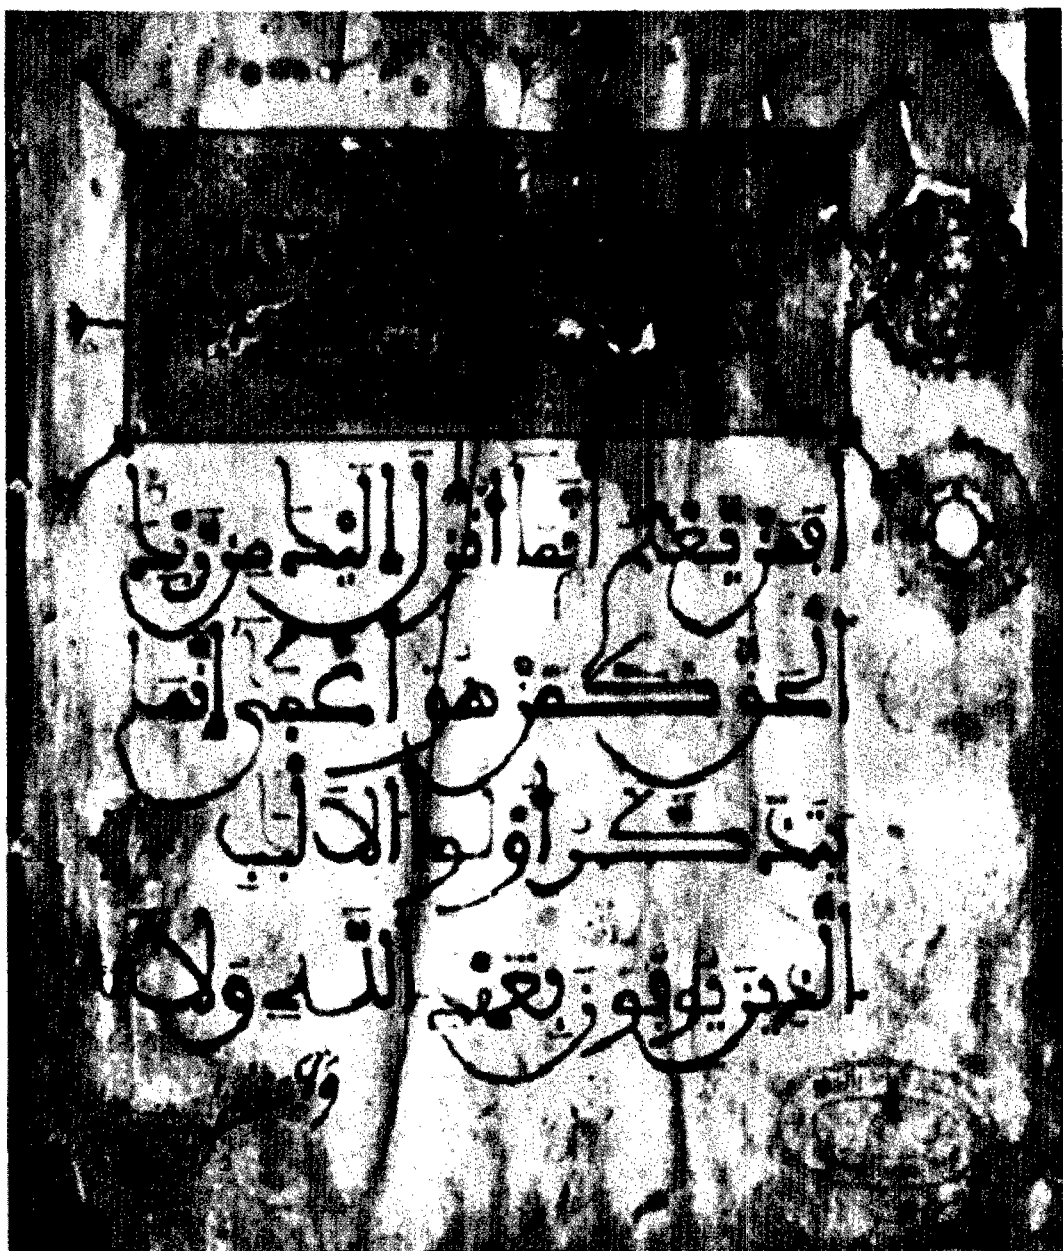 افمن يعلم انما انزل اليك من ربك
الحق كمن هو اعمى انما
يتذكر اولوا الالبب
الذين يوفون بعهد الله ولا